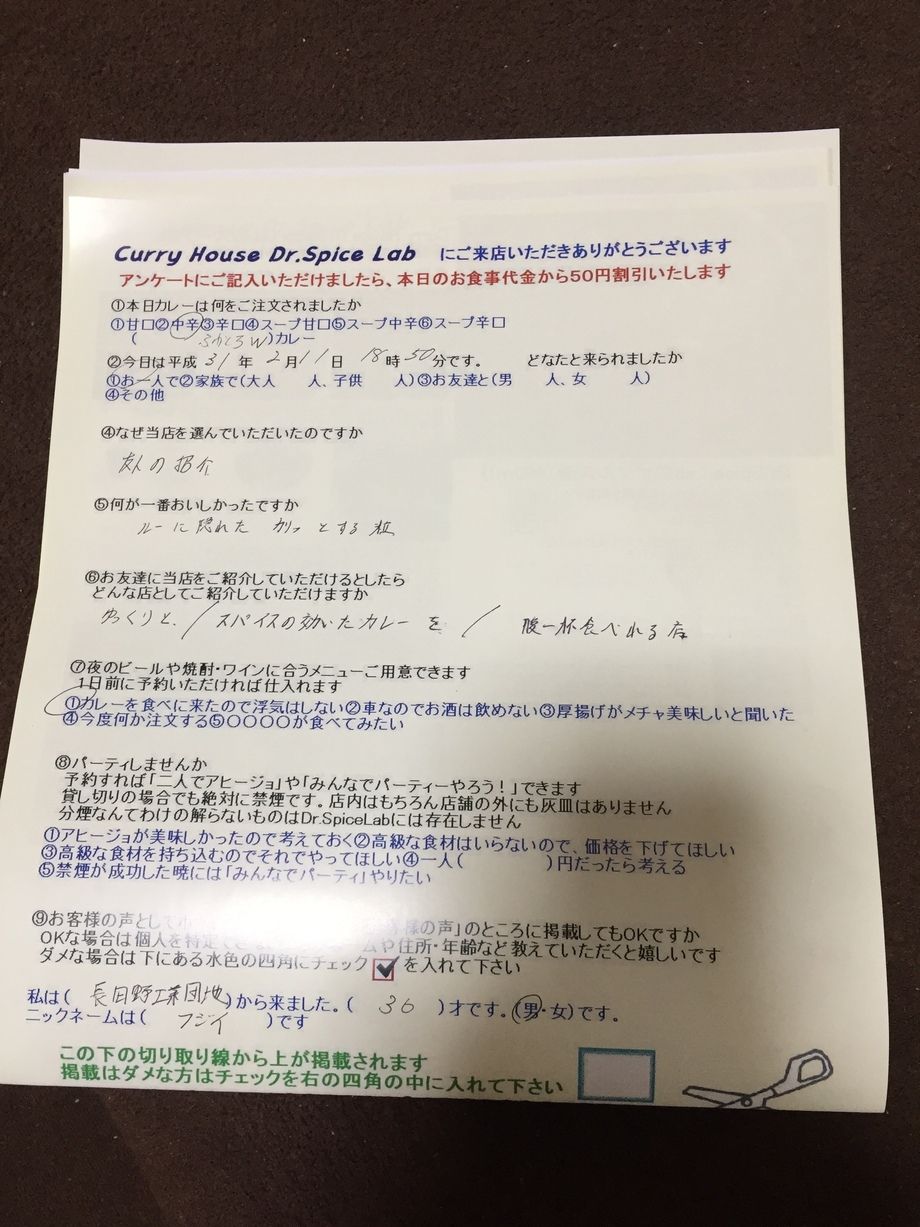 Curry House Dr.Spice Lab にご来店いただきありがとうございます
アンケートにご記入いただけましたら、本日のお食事代金から50円割引いたします
①本日カレーは何をご注文されましたか
①甘口②中辛③辛口④スープ甘口⑤スープ中辛⑥スープ辛口
( ふわとろW )カレー
②今日は平成 31 年 2 月 11 日 18 時 50 分です。 どなたと来られましたか
①お一人で②家族で(大人 人、子供 人)③お友達と(男 人、女 人)
④その他
④なぜ当店を選んでいただいたのですか
友人の紹介
⑤何が一番おいしかったですか
ルーに隠れた カリッとする粒
⑥お友達に当店をご紹介していただけるとしたら
どんな店としてご紹介していただけますか
ゆっくりと、/ スパイスの効いたカレーを / 腹一杯食べれる店
⑦夜のビールや焼酎・ワインに合うメニューご用意できます
1日前に予約いただければ仕入れます
①カレーを食べに来たので浮気はしない②車なのでお酒は飲めない③厚揚げがメチャ美味しいと聞いた
④今度何か注文する⑤〇〇〇〇が食べてみたい
⑧パーティしませんか
予約すれば「二人でアヒージョ」や「みんなでパーティーやろう!」できます
貸し切りの場合でも絶対に禁煙です。店内はもちろん店舗の外にも灰皿はありません
分煙なんてわけの解らないものはDr.SpiceLabには存在しません
①アヒージョが美味しかったので考えておく②高級な食材はいらないので、価格を下げてほしい
③高級な食材を持ち込むのでそれでやってほしい④一人( )円だったら考える
⑤禁煙が成功した暁には「みんなでパーティ」やりたい
⑨お客様の声として 様の声」のところに掲載してもOKですか
OKな場合は個人を特定でき ムや住所・年齢など教えていただくと嬉しいです
ダメな場合は下にある水色の四角にチェック を入れて下さい
私は( 長田野工業団地 )から来ました。( 36 )才です。(男・女)です。
ニックネームは( フジイ )です
この下の切り取り線から上が掲載されます
掲載はダメな方はチェックを右の四角の中に入れて下さい